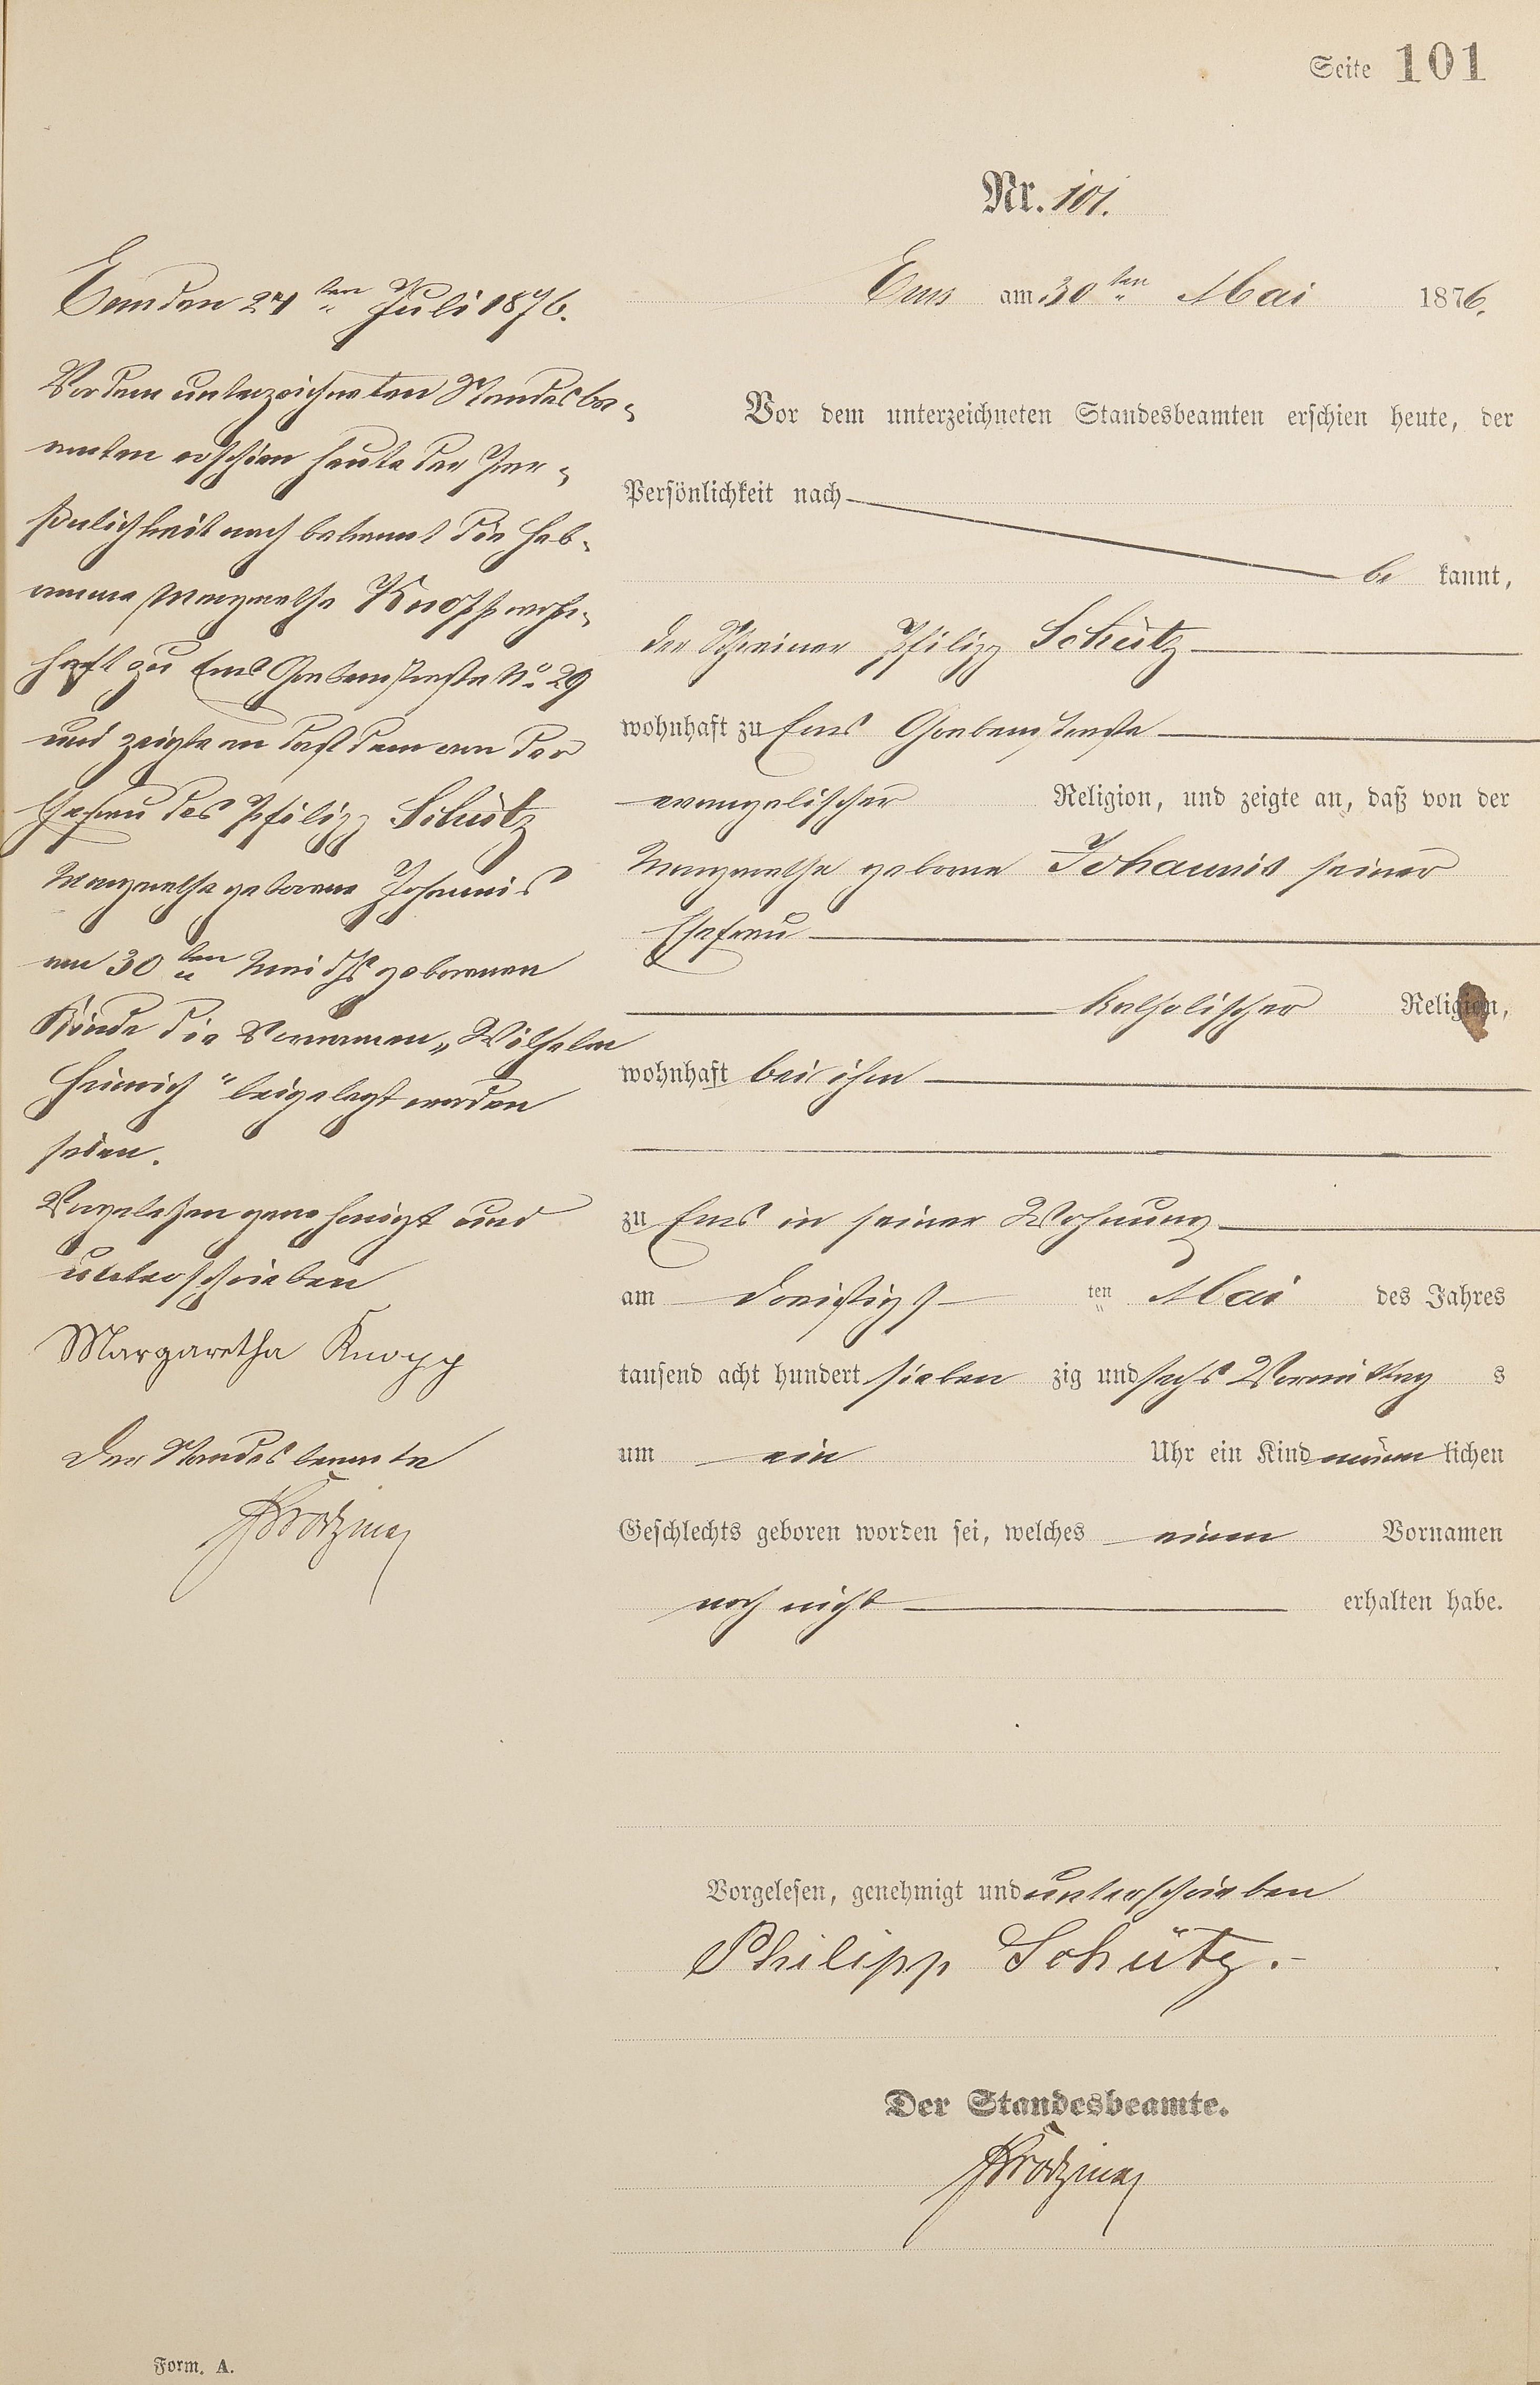 Seite 101
Nr. 101.
Ems am 30ten Mai 1876.
Vor dem unterzeichneten Standesbeamten erschien heute, der
Persönlichkeit nach
be kannt,
der Schreiner Philipp Schütz
wohnhaft zu Ems Grabenstraße
evangelischer Religion, und zeigte an, daß von der
Margarethe geborne Johannis seiner
Ehefrau
katholischer Religion,
wohnhaft bei ihm
zu Ems in seiner Wohnung
am dreißigst ten Mai des Jahres
tausend acht hundert sieben zig und sechs Vormittag s
um ein Uhr ein Kind männ lichen
Geschlechts geboren worden sei, welches einen Vornamen
noch nicht erhalten habe.
Vorgelesen, genehmigt und unterschrieben
Philipp Schütz.
Der Standesbeamte.
Ems den 24ten Juli 1876.
Vor dem unterzeichneten Standesbe-
amten erschien heute der Per-
sönlichkeit nach bekannt die Heb-
amme Margarethe Knopp wohn-
haft zu Ems Grabenstraße No 29
und zeigte an daß dem von der
Ehefrau des Philipp Schütz
Margarethe geborene Johannis
am 30ten Mai ds Js geborenen
Kinde die Vornamen „Wilhelm
Heinrich" beigelegt worden
seien.
Vorgelesen genehmigt und
unterschrieben
Margaretha Knopp
Der Standesbeamte
Form. A.